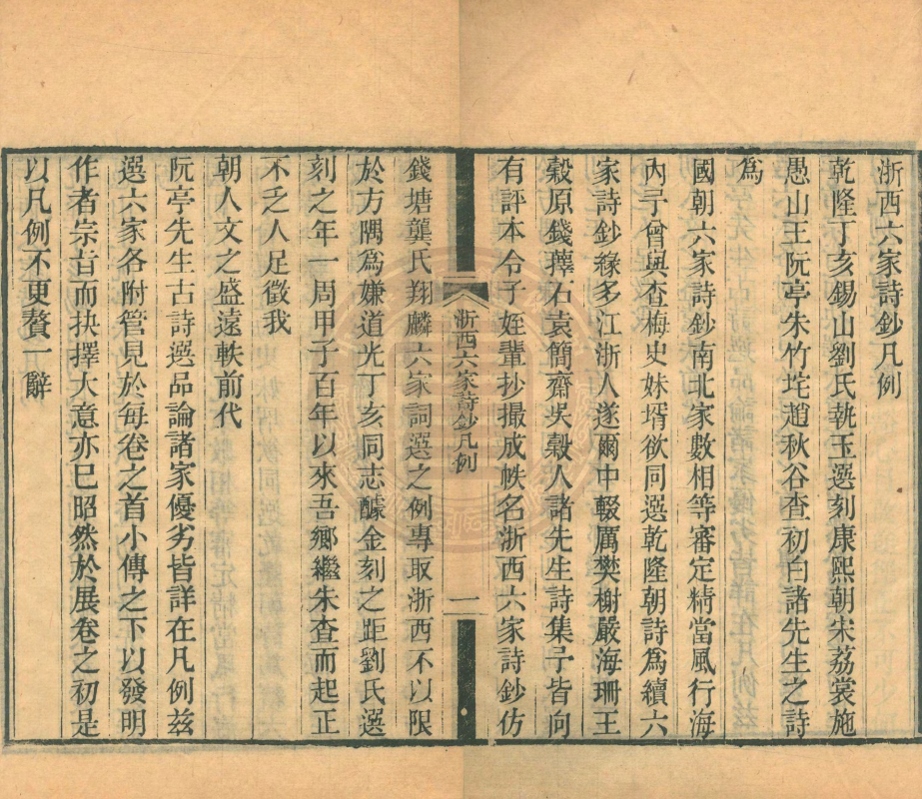 浙西六家詩鈔凡例
乾隆丁亥錫山劉氏執玉選刻康熙朝宋荔裳施
愚山王阮亭朱竹垞趙秋谷查初白諸先生之詩
爲
國朝六家詩鈔南北家數相等審定精當風行海
內予曾與查梅史妹壻欲同選乾隆朝詩爲續六
家詩鈔緣多江浙人遂爾中輟厲樊榭嚴海珊王
穀原錢蘀石袁簡齋吳穀人諸先生詩集予皆向
有評本令子姪輩抄撮成帙名浙西六家詩鈔仿
浙西六家詩鈔凡例
一
錢塘龔氏翔麟六家詞選之例專取浙西不以限
於方隅爲嫌道光丁亥同志醵金刻之距劉氏選
刻之年一周甲子百年以來吾鄉繼朱查而起正
不乏人足徵我
朝人文之盛遠軼前代
阮亭先生古詩選品論諸家優劣皆詳在凡例茲
選六家各附管見於每卷之首小傳之下以發明
作者宗旨而抉擇大意亦已昭然於展卷之初是
以凡例不更贅一辭